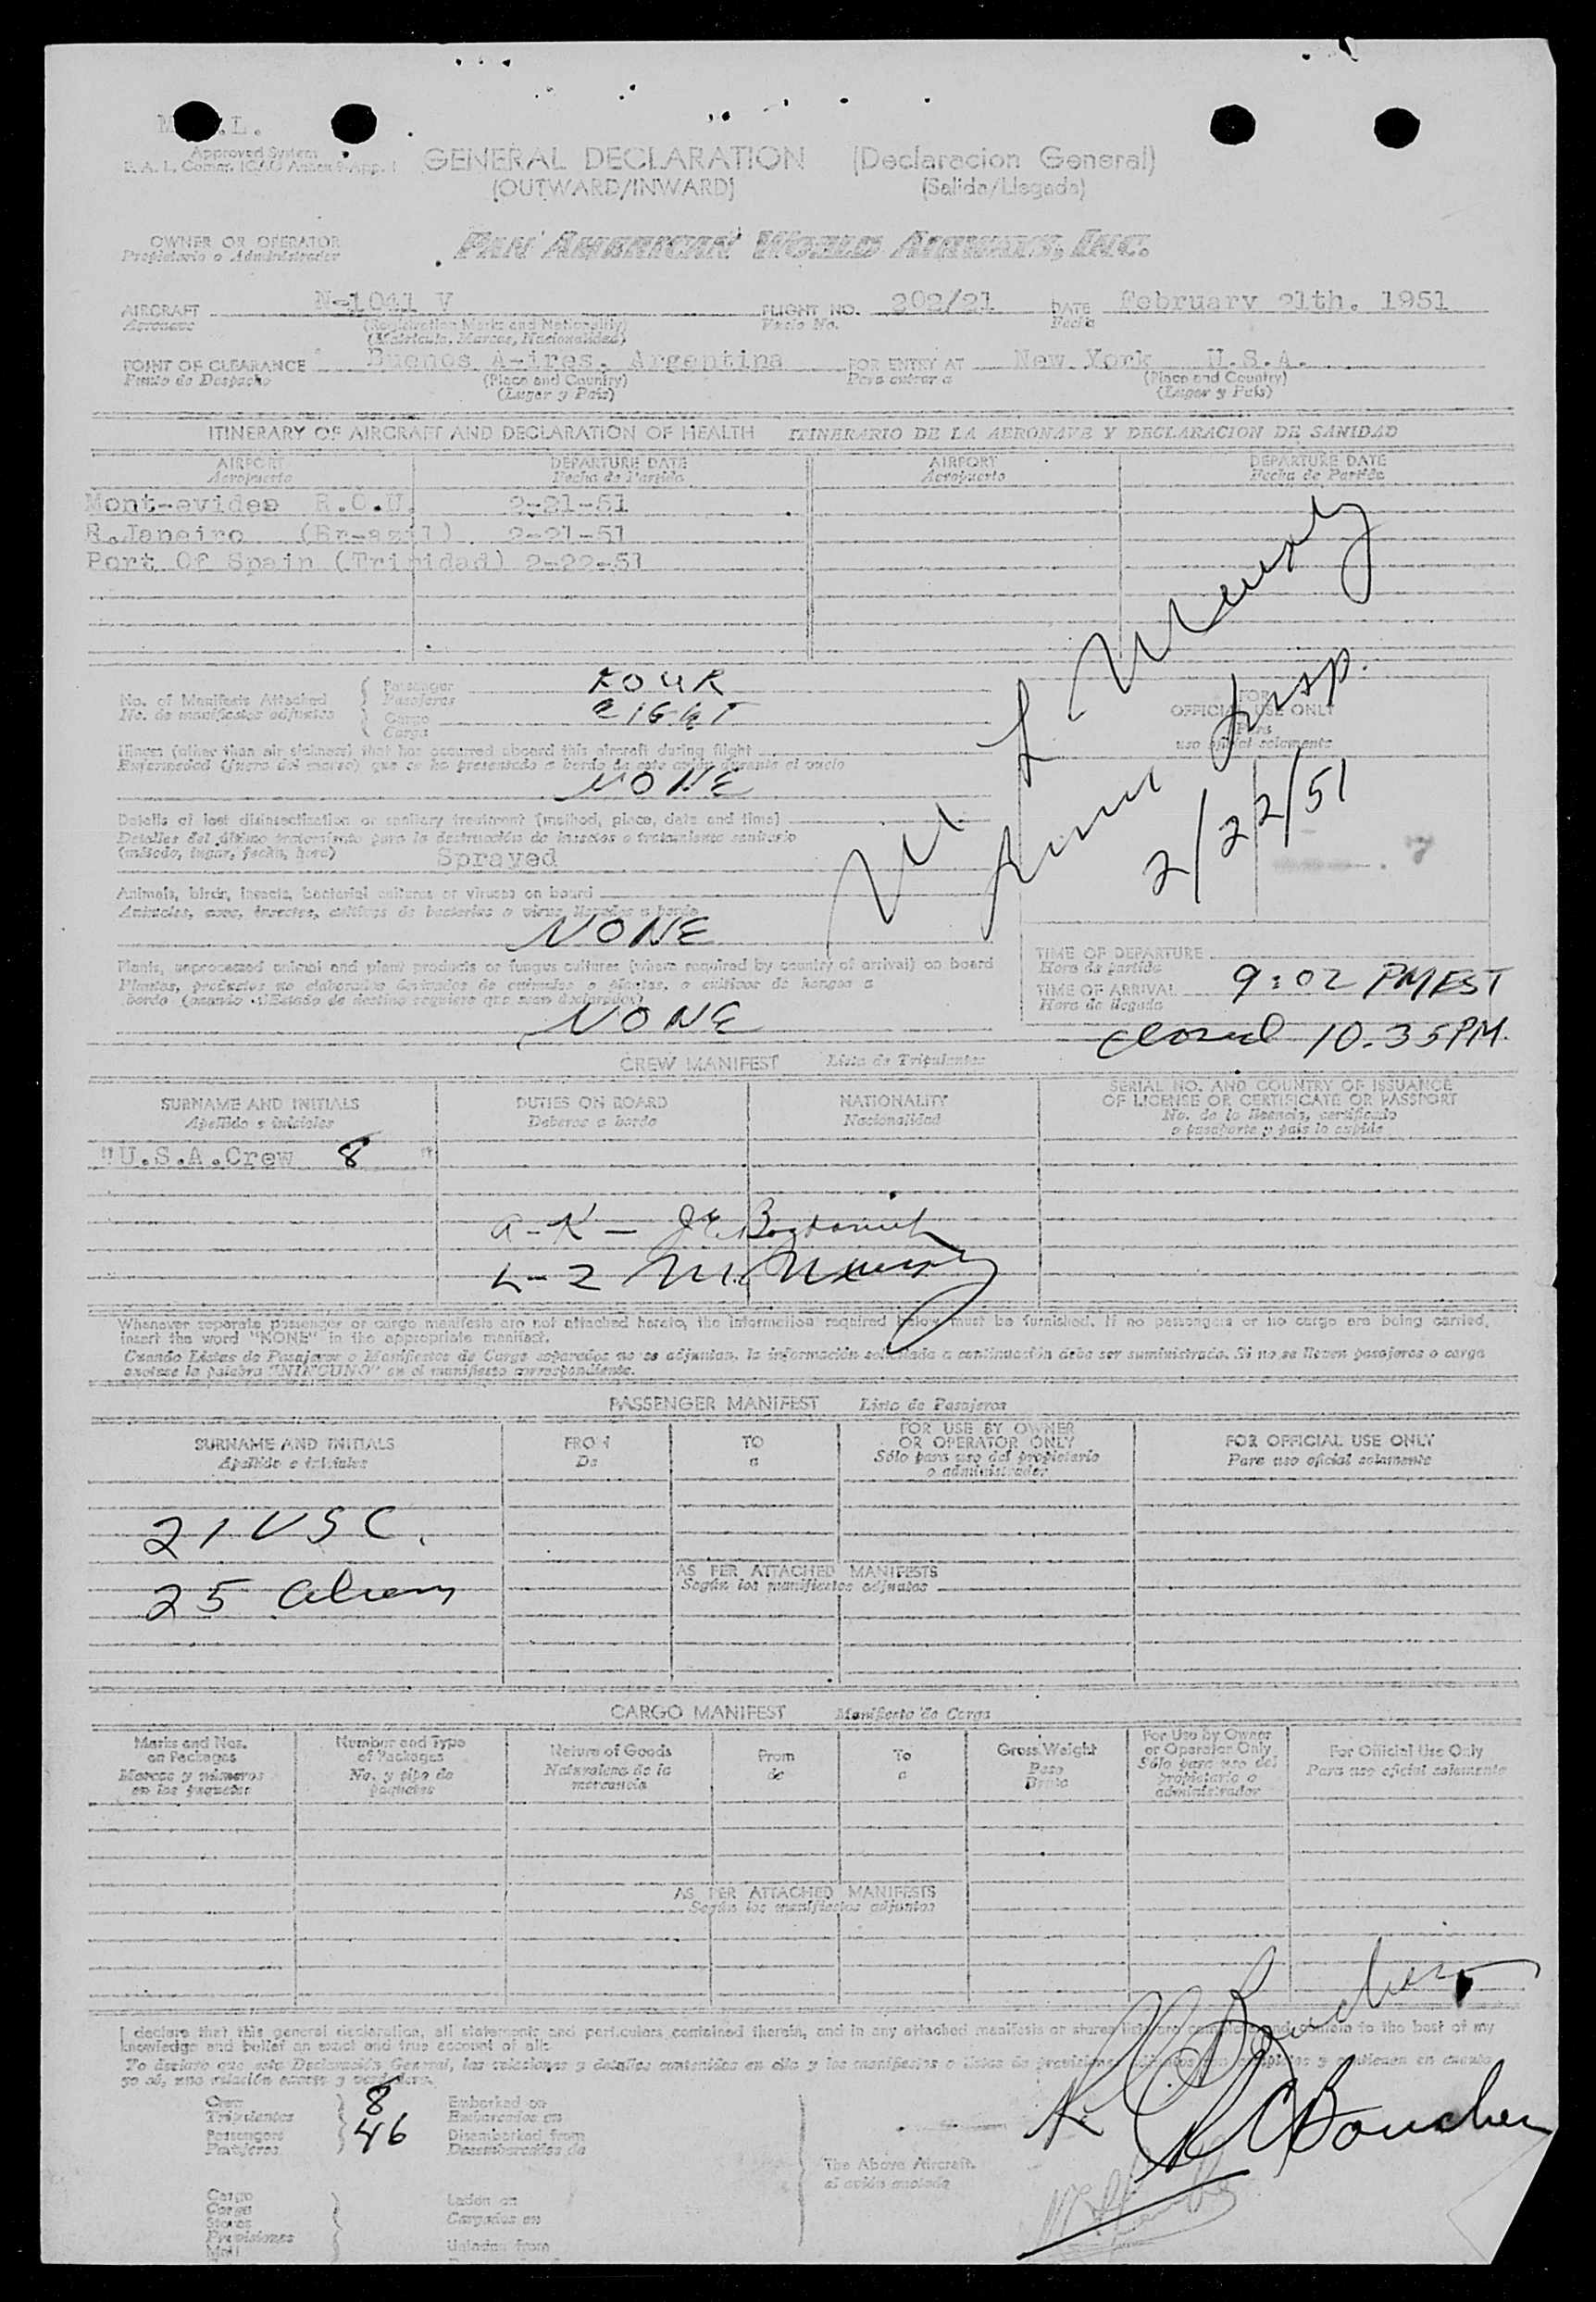 Approved System
GENERAL DECLARATION (Declaracion General)
(OUTWARD/INWARD) (Salida/Llegada)
OWNER OR OPERATOR
Propietario o Administrador
PAN AMERICAN WORLD AIRWAYS, INC.
AIRCRAFT N-1041 V FLIGHT NO. 202/21 DATE February 21th. 1951
Aeronave (Registration Marks and Nationality) Vuelo No. Fecha
(Matricula, Marcas, Nacionalidad)
POINT OF CLEARANCE Buenos A-ires. Argentina FOR ENTRY AT New York U.S.A.
Punto de Despacho (Place and Country) Para entrar a (Place and Country)
(Lugar y Pais) (Lugar y Pais)
ITINERARY OF AIRCRAFT AND DECLARATION OF HEALTH ITINERARIO DE LA AERONAVE Y DECLARACION DE SANIDAD
AIRPORT DEPARTURE DATE AIRPORT DEPARTURE DATE
Aeropuerto Fecha de Partida Aeropuerto Fecha de Partida
Mont-evideo R.O.U. 2-21-51
R.Janeiro (Br-azil) 2-21-51
Port Of Spain (Trinidad) 2-22-51
No. of Manifests Attached Passenger FOUR
No. de manifiestos adjuntos Pasajeros
Cargo EIGHT
Carga
FOR
OFFICIAL USE ONLY
Para
uso oficial solamente
Insp.
2/22/51
Illness (other than air sickness) that has occurred aboard this aircraft during flight
Enfermedad (fuera del mareo) que se ha presentado a bordo de este avión durante el vuelo
NONE
Details of last disinsectization or sanitary treatment (method, place, date and time)
Detalles del último tratamiento para la destrucción de insectos o tratamiento sanitario
(método, lugar, fecha, hora) Sprayed
Animals, birds, insects, bacterial cultures or viruses on board
Animales, aves, insectos, cultivos de bacterias o virus llevados a bordo
NONE
Plants, unprocessed animal and plant products or fungus cultures (where required by country of arrival) on board
Plantas, productos no elaborados derivados de animales o plantas, o cultivos de hongos a
bordo (cuando el Estado de destino requiere que sean declarados)
NONE
TIME OF DEPARTURE
Hora de partida
TIME OF ARRIVAL 9:02 PM EST
Hora de llegada
closed 10.35 PM.
CREW MANIFEST Lista de Tripulantes
SURNAME AND INITIALS DUTIES ON BOARD NATIONALITY SERIAL NO. AND COUNTRY OF ISSUANCE
OF LICENSE OR CERTIFICATE OR PASSPORT
Apellido e iniciales Deberes a bordo Nacionalidad No. de la licencia, certificado
o pasaporte y pais lo expide
"U.S.A.Crew 8 "
A-K -
L-Z
Whenever separate passenger or cargo manifests are not attached hereto, the information required below must be furnished. If no passengers or no cargo are being carried,
insert the word "NONE" in the appropriate manifest.
Cuando Listas de Pasajeros o Manifiestos de Carga separados no se adjuntan, la información solicitada a continuación debe ser suministrada. Si no se llevan pasajeros o carga
anótese la palabra "NINGUNO" en el manifiesto correspondiente.
PASSENGER MANIFEST Lista de Pasajeros
SURNAME AND INITIALS FROM TO FOR USE BY OWNER
OR OPERATOR ONLY FOR OFFICIAL USE ONLY
Apellido e iniciales De a Sólo para uso del propietario
o administrador Para uso oficial solamente
21 USC.
AS PER ATTACHED MANIFESTS
Según los manifiestos adjuntos
25 Aliens
CARGO MANIFEST Manifiesto de Carga
Marks and Nos.
on Packages
Marcas y números
en los paquetes
Number and Type
of Packages
No. y tipo de
paquetes
Nature of Goods
Naturaleza de la
mercancía
From
de
To
a
Gross Weight
Peso
Bruto
For Use by Owner
or Operator Only
Sólo para uso del
propietario o
administrador
For Official Use Only
Para uso oficial solamente
AS PER ATTACHED MANIFESTS
Según los manifiestos adjuntos
I declare that this general declaration, all statements and particulars contained therein, and in any attached manifests or stores lists are complete and contain to the best of my
knowledge and belief an exact and true account of all:
Crew 8 Embarked on
Tripulantes Embarcados en
Passengers 46 Disembarked from
Pasajeros Desembarcados de
The Above Aircraft.
al avión anotado
K C Boucher
Cargo Laden on
Carga Cargados en
Stores
Provisiones
Mail Unladen from